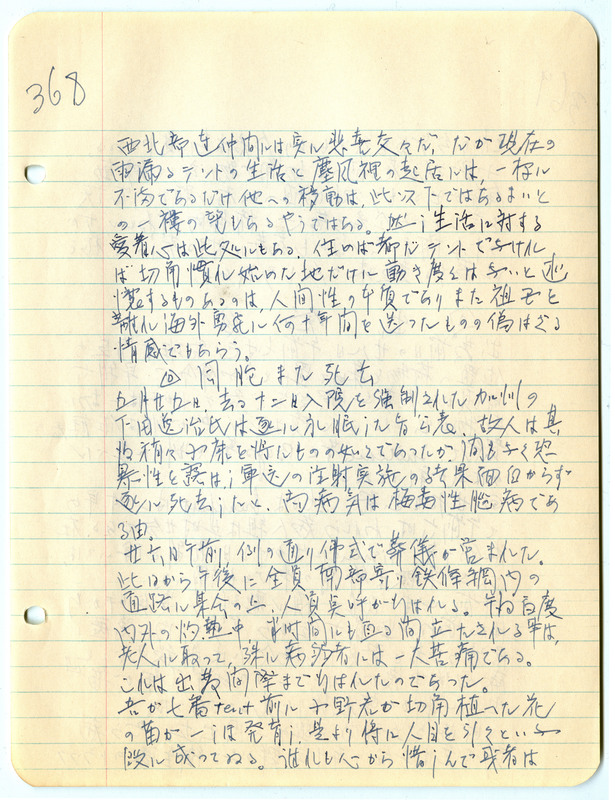 368
西北部連中間には実に悲喜交々だ、なが現在の
雨漏るテントの生活と塵風裡の起居には、一様に
不满であるだけ他への移動は、此以下ではあるまいと
の一種の望もあるやうではある。然し生活に対する
愛着心は此処にもある、住めば都だテントで
ば切角慣れ始めた地だけに動き度くはないと
するものあるのは、人間性の本質でありまた祖国を
離れ海外に何十年間を送ったものの偽はざる
情感でもあらう。
◎ 同胞また死去
五月廿五日、去る十二日入院を強制された加州の
下田 治氏は遂に永眠した旨公表、故人は其
の如くであったが、間もなく
性を露はし軍医の注射実施の結果面白からず
遂に死去したと、尚病気は梅毒性脳病であ
る由。
廿六日午前、例の通り佛式で葬儀が営まれた。
此日から午後に全員南部寄り鉄條網内の
通路に集合の上、人員点呼が行はれる。百度
内外の灼熱中、半時間にも亘る間立たされる事は、
老人に取って、殊に病弱者には一大苦痛である。
これは出発間際まで行はれたのであった。
吾が七番tent前に 野君が切角植へた花
の苗が一しほ発育し、是より将に人目を引くといふ
段に成ってゐる。誰れも心から惜しんで或者は